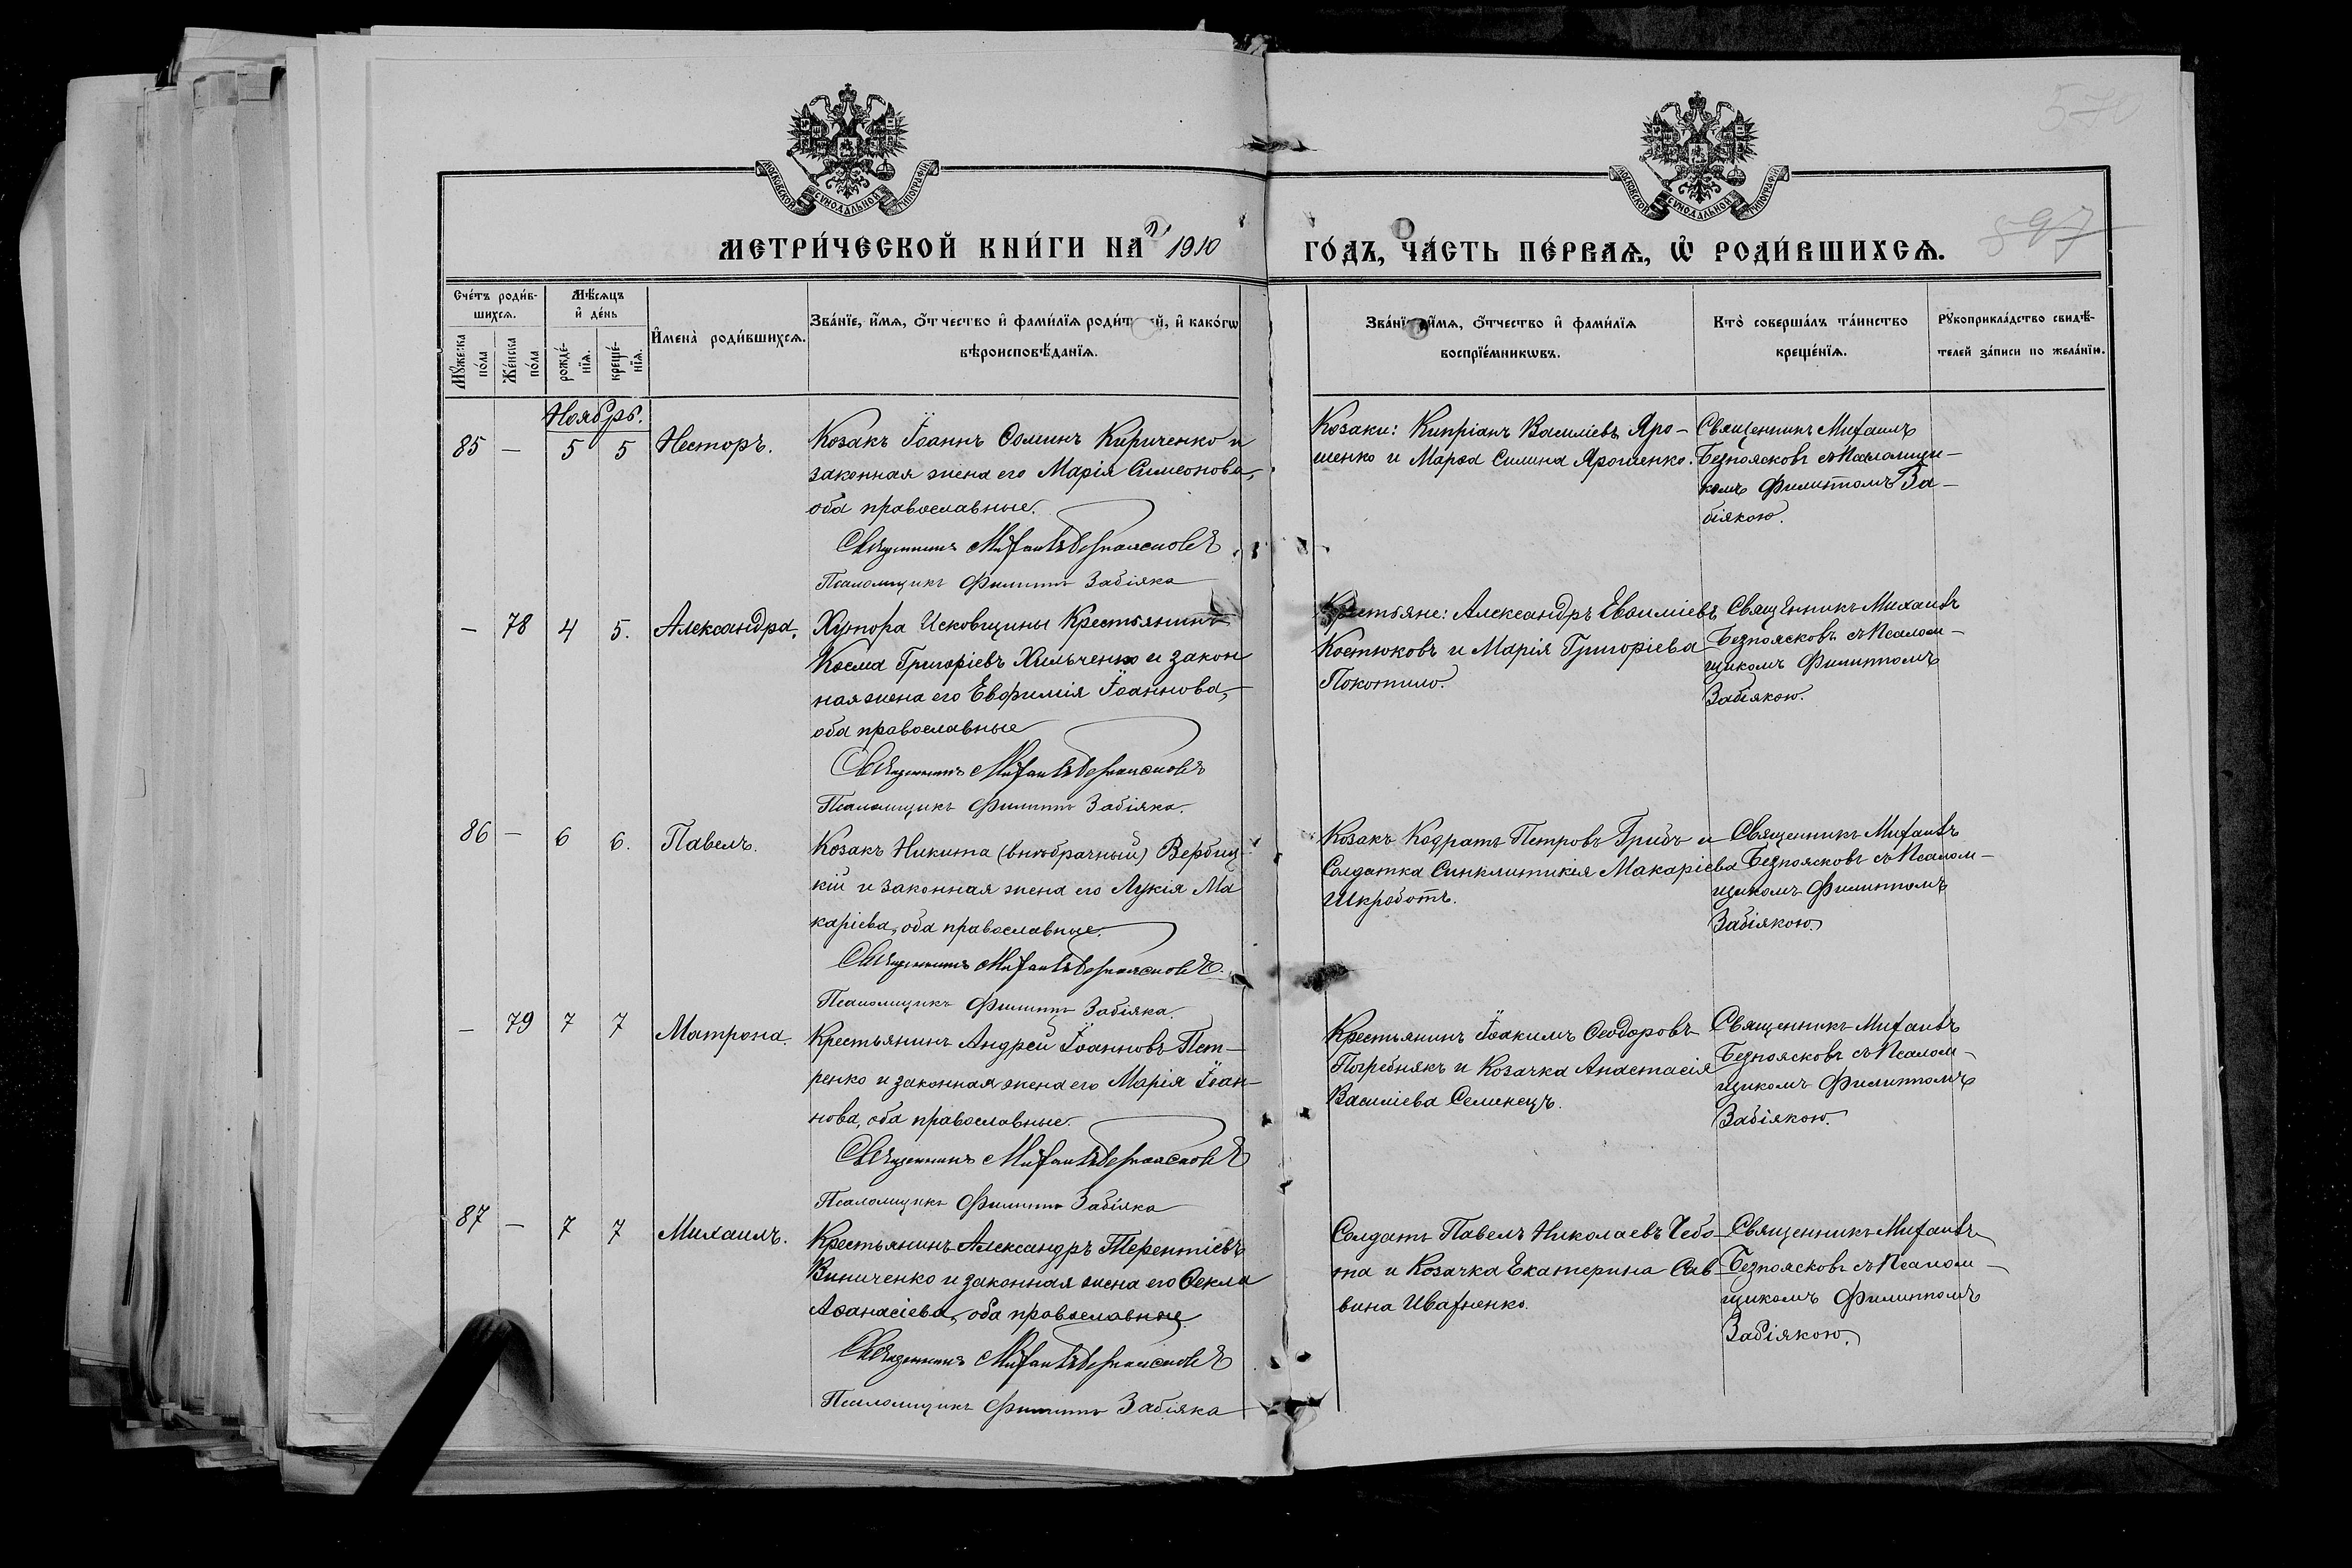 570
МОСКОВСКОЙ СѴНОДАЛЬНОЙ ТИПОГРАФІИ
МОСКОВСКОЙ СѴНОДАЛЬНОЙ ТИПОГРАФІИ
МЕТРИ́ЧЕСКОЙ КНИ́ГИ НА 1910
ГО́ДЪ, ЧА́СТЬ ПЕ́РВАѦ, Ѡ҆ РОДИ́ВШИХСѦ.
597
Сче́тъ роди́в-
шихсѧ.
Мꙋ́жеска по́ла
Же́нска по́ла
Мѣ́сѧцъ
и҆ де́нь
рожде́-
нїѧ.
креще́-
нїѧ.
И҆мена̀ роди́вшихсѧ.
Зва́нїе, и҆́мѧ, ѻ҆́тчество и҆ фами́лїѧ роди́т й, и҆ како́гѡ
вѣроисповѣ́данїѧ.
Зва́нї и҆́мѧ, ѻ҆́тчество и҆ фами́лїѧ
воспрїе́мникѡвъ.
Кто̀ соверша́лъ та́инство
креще́нїѧ.
Рꙋкоприкла́дство свидѣ́-
телей за́писи по жела́нїю.
Ноябрь.
85 — 5 5 Несторъ.
Козакъ Іоаннъ Ѳоминъ Кириченко и
законная жена его Марія Симеонова,
оба православные.
Священникъ Михаилъ Безпоясковъ
Псаломщикъ Филиппъ Забіяка
Козаки: Кипріанъ Василіевъ Яро-
шенко и Марѳа Силина Ярошенко.
Священникъ Михаилъ
Безпоясковъ съ Псаломщи-
комъ Филиппомъ За-
біякою.
— 78 4 5. Александра.
Хутора Исковщины Крестьянинъ
Косма Григоріевъ Хильченко и закон
ная жена его Евфимія Іоаннова,
оба православные
Священникъ Михаилъ Безпоясковъ
Псаломщикъ Филиппъ Забіяка.
Крестьяне: Александръ Евѳиміевъ
Костюковъ и Марія Григоріева
Покотило.
Священникъ Михаилъ
Безпоясковъ съ Псалом-
щикомъ Филиппомъ
Забіякою.
86 — 6 6. Павелъ.
Козакъ Никита (внѣбрачный) Вербиц-
кій и законная жена его Лукія Ма
каріева, оба православные.
Священникъ Михаилъ Безпоясковъ.
Псаломщикъ Филиппъ Забіяка.
Козакъ Кодратъ Петровъ Грибъ и
Солдатка Синклитикія Макаріева
Шкроботъ.
Священникъ Михаилъ
Безпоясковъ съ Псалом-
щикомъ Филиппомъ
Забіякою.
— 79 7 7 Матрона.
Крестьянинъ Андрей Іоанновъ Пет-
ренко и законная жена его Марія Іоан-
нова, оба православные.
Священникъ Михаилъ Безпоясковъ
Псаломщикъ Филиппъ Забіяка
Крестьянинъ Іоакимъ Ѳеодоровъ
Погребнякъ и Козачка Анастасія
Василіева Семенецъ.
Священникъ Михаилъ
Безпоясковъ съ Псалом-
щикомъ Филиппомъ
Забіякою.
87 — 7 7 Михаилъ.
Крестьянинъ Александръ Терентіевъ
Виниченко и законная жена его Ѳекла
Аѳанасіева, оба православные.
Священникъ Михаилъ Безпоясковъ
Псаломщикъ Филиппъ Забіяка
Солдатъ Павелъ Николаевъ Чебо-
та и Козачка Екатерина Сав-
вина Ивахненко.
Священникъ Михаилъ
Безпоясковъ съ Псалом-
щикомъ Филиппомъ
Забіякою.